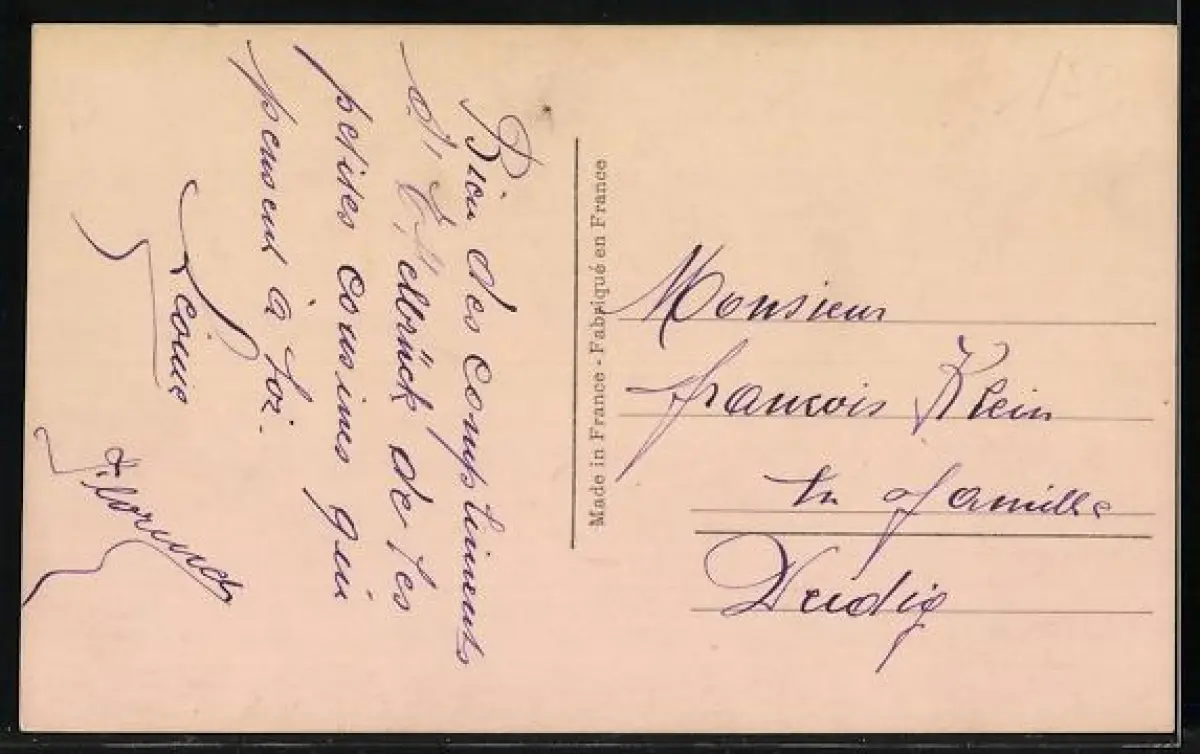 Bien des compliments
d'Ellerück de tes
petites cousines qui
pensent à toi.
Louise
Made in France - Fabriqué en France
Monsieur
François Klein
en famille